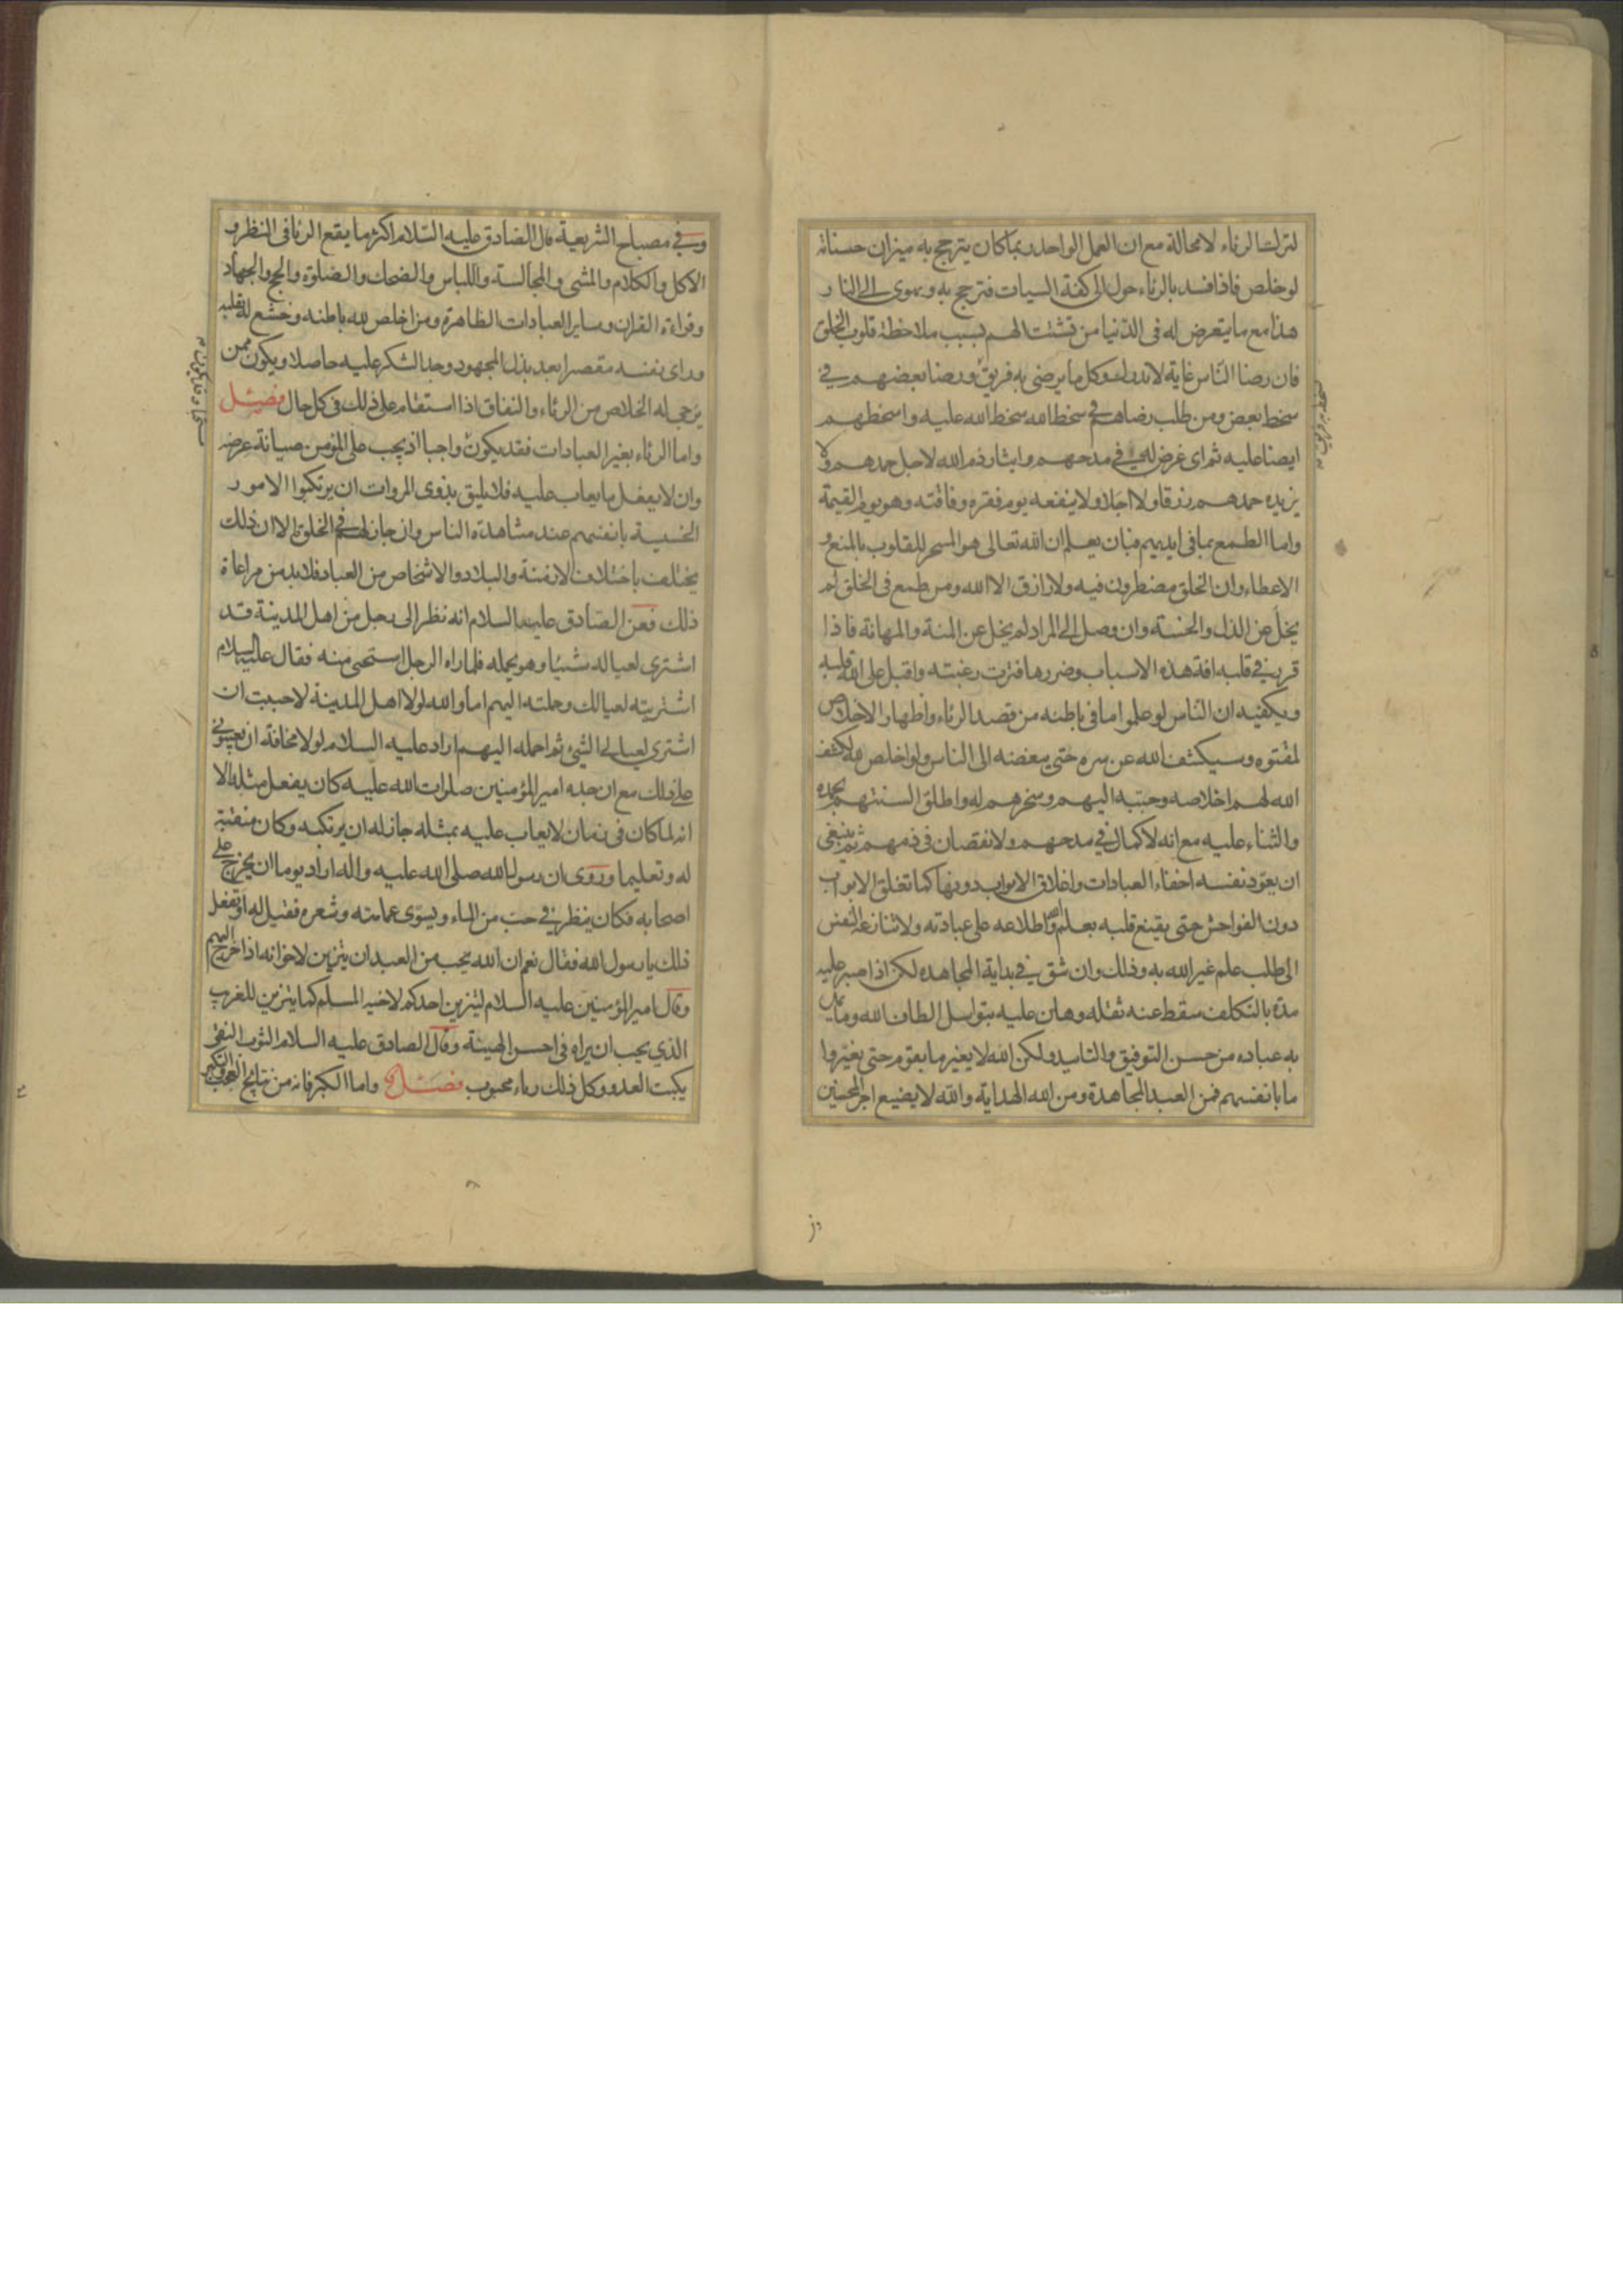 لترك الرئاء لا محالة مع ان العمل الواحد ربما كان يترجح به ميزان حسناته
لو خلص فاذا فسد بالرئاء حول الى كفة السيات فترجح به ويهوى الى النار
هذا مع ما يتعرض له فى الدنيا من تشتت الهم بسبب ملاحظة قلوب الخلق
فان رضا الناس غاية لا تدرك وكل ما يرضى به فريق ورضا بعضهم في
سخط بعض ومن طلب رضاهم في سخط الله سخط الله عليه واسخطهم
ايضا عليه ثم اى غرض له في مدحهم وايثار ذم الله لاجل حمدهم ولا
يزيده حمدهم رزقا ولا اجلا ولا ينفعه يوم فقره وفاقته وهو يوم القيمة
واما الطمع بما فى ايديهم فبان يعلم ان الله تعالى هو المسخر للقلوب بالمنع و
الاعطاء وان الخلق مضطرون فيه ولا رازق الا الله ومن طمع فى الخلق لم
يخل من الذل والخسة وان وصل الى المراد لم يخل عن المنة والمهانة فاذا
قرر في قلبه افة هذه الاسباب وضررها فترت رغبته واقبل على الله قلبه
ويكفيه ان الناس لو علموا ما فى باطنه من قصد الرئاء واظهار الاخلاص
لمقتوه وسيكشف الله عن سره حتى يبغضه الى الناس ولو اخلص لله لكشف
الله لهم اخلاصه وحببه اليهم وسخرهم له واطلق السنتهم بحمده
والثناء عليه مع انه لا كمال في مدحهم ولا نقصان فى ذمهم ثم ينبغى
ان يعود نفسه اخفاء العبادات واغلاق الابواب دونها كما تغلق الابواب
دون الفواحش حتى يقنع قلبه بعلم الله واطلاعه على عبادته ولا تنازعه النفس
الى طلب علم غير الله به وذلك وان شق في بداية المجاهده لكن اذا صبر عليه
مدة بالتكلف سقط عنه ثقله وهان عليه بتواصل الطاف الله وما يمد
به عباده من حسن التوفيق والتاييد ولكن الله لا يغير ما بقوم حتى يغيروا
ما بانفسهم فمن العبد المجاهدة ومن الله الهداية والله لا يضيع اجر المحسنين
وفي مصباح الشريعة قال الصادق عليه السلام اكثر ما يقع الرئا فى النظر و
الاكل والكلام والمشى والمجالسة واللباس والضحك والصلوة والحج والجهاد
وقراءة القران وساير العبادات الظاهرة ومن اخلص لله باطنه وخشع له بقلبه
وراى نفسه مقصرا بعد بذل المجهود وجد الشكر عليه حاصلا ويكون ممن
يرجى له الخلاص من الرئاء والنفاق اذا استقام على ذلك فى كل حال فصل
واما الرئاء بغير العبادات فقد يكون واجبا اذ يجب على المؤمن صيانة عرضه
وان لا يفعل ما يعاب عليه فلا يليق بذوى المروات ان يرتكبوا الامور
الخسيسة بانفسهم عند مشاهدة الناس وان جاز لهم في الخلق الا ان ذلك
يختلف باختلاف الازمنة والبلاد والاشخاص من العباد فلا بد من مراعاة
ذلك فعن الصادق عليه السلام انه نظر الى رجل من اهل المدينة قد
اشترى لعياله شيئا وهو يحمله فلما راه الرجل استحيى منه فقال عليه السلام
اشتريته لعيالك وحملته اليهم اما والله لولا اهل المدينة لاحببت ان
اشتري لعيالى الشئ ثم احمله اليهم اراد عليه السلام لولا مخافة ان يعيبوني
على ذلك مع ان جده امير المؤمنين صلوات الله عليه كان يفعل مثله الا
انه لما كان فى زمان لا يعاب عليه بمثله جاز له ان يرتكبه وكان منقبة
له وتعليما وروى ان رسول الله صلى الله عليه واله اراد يوما ان يخرج على
اصحابه فكان ينظر في حب من الماء ويسوى عمامته وشعره فقيل له او تفعل
ذلك يا رسول الله فقال نعم ان الله يحب من العبد ان يتزين لاخوانه اذا خرج اليهم
وقال امير المؤمنين عليه السلام ليتزين احدكم لاخيه المسلم كما يتزين للغريب
الذي يحب ان يراه فى احسن الهيئة وقال الصادق عليه السلام الثوب النقى
يكبت العدو وكل ذلك رياء محبوب فصل واما الكبر فانه من نتايج العجب